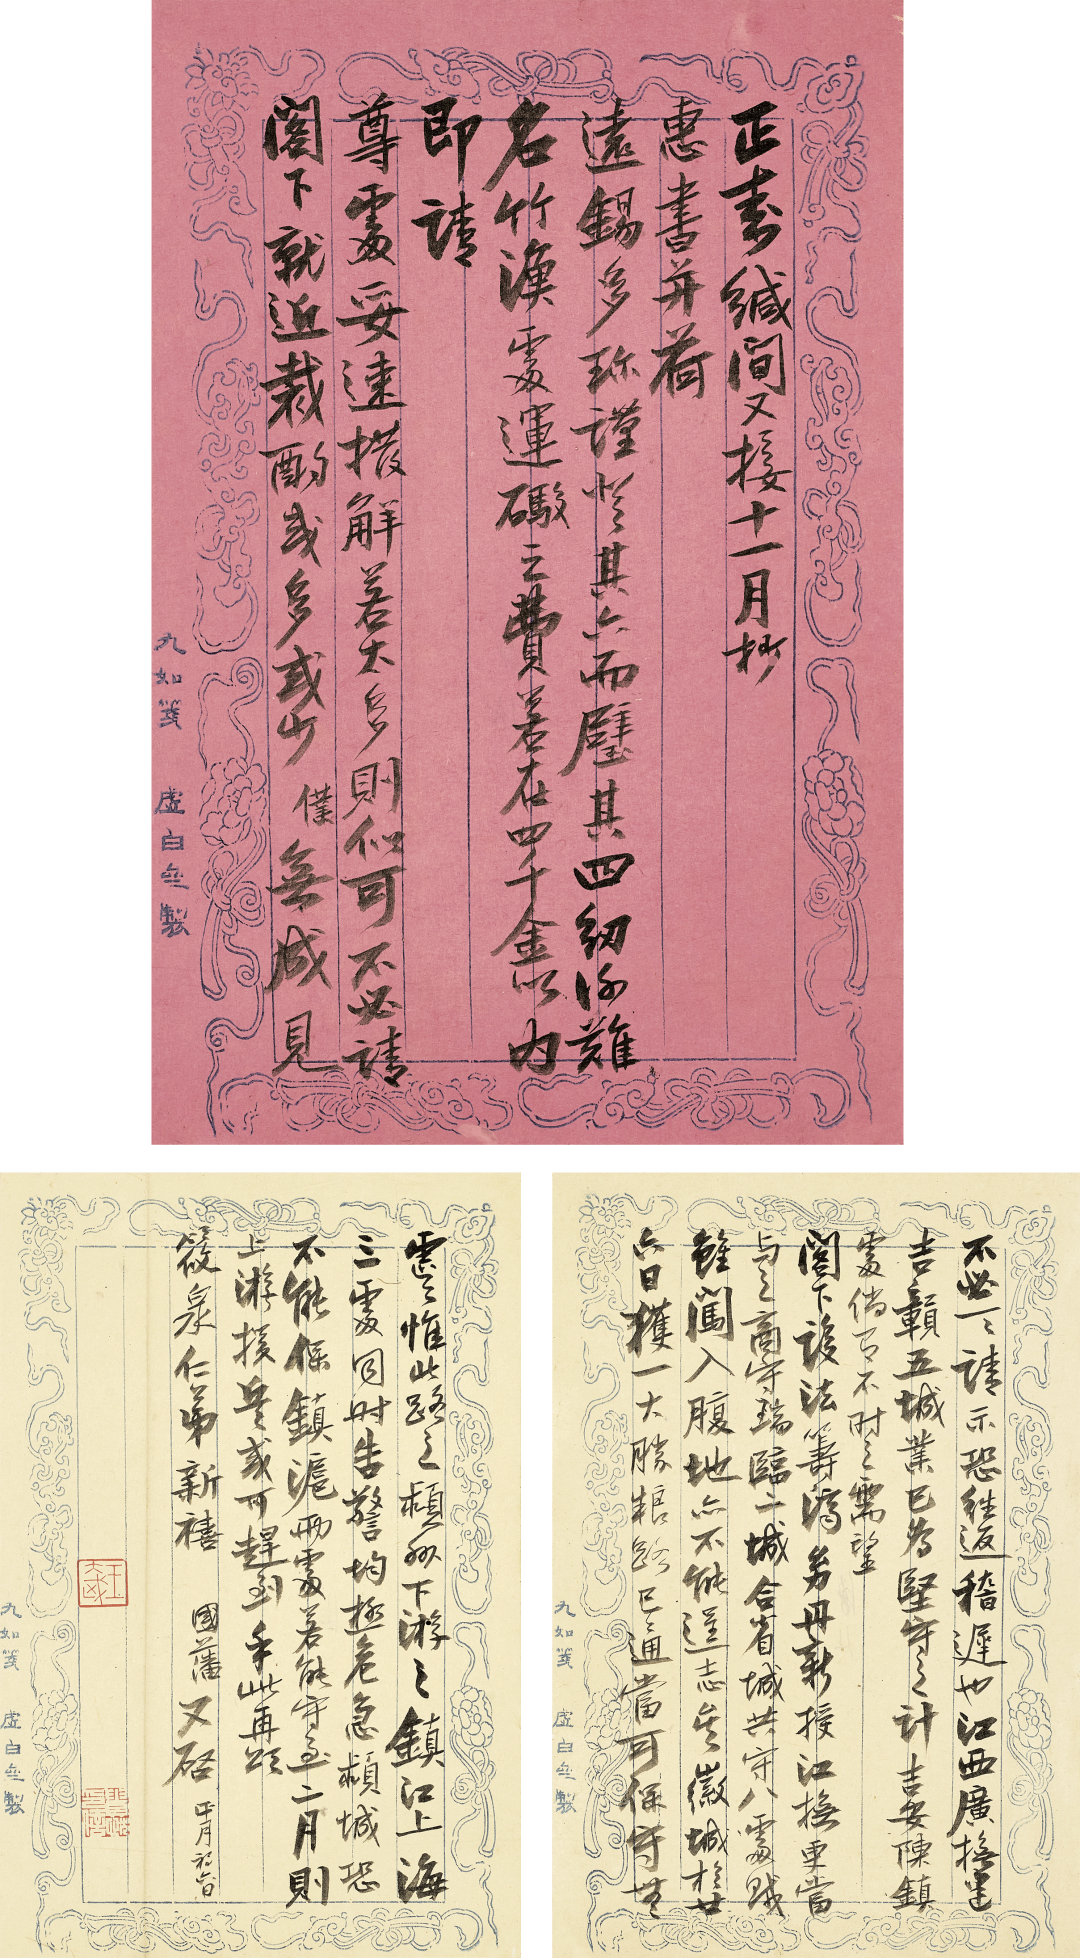 正壽緘間又接十一月抄
惠書并荷
遠錫多珍謹登其六而璧其四紉謝難
名竹漁處運礮之費若在四千金以内
即請
尊處妥速撥解若太多則似可不必請
閣下就近裁酌或多或少僕無成見
九如箋 虛白齋製
不必一一請示恐往返稽遲也江西廣撫建
吉贛五城業已為堅守之計吉安陳鎮
處倘有不時之需望
閣下設法籌濟努丹新授江撫更當
與之商守瑞臨二城合省城共守八處賊
雖闖入腹地亦不能逞志矣徽城於廿
六日獲一大勝糧路已通當可保守無
九如箋 虛白齋製
虞惟此路之賴及下游之鎮江上海
三處同時告警均極危急賴城恐
不能保鎮滬兩處若能守至二月則
上游援兵或可趕到手此再頌
筱泉仁弟新禧 國藩又啓 正月初六日
九如箋 虛白齋製